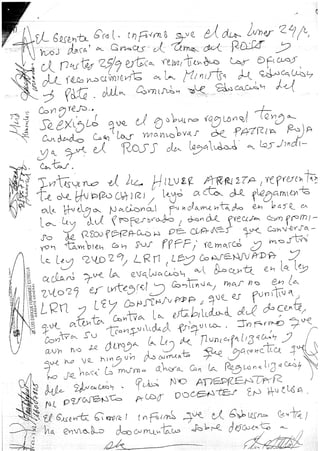 El Gerente Gral. informó que el día lunes 24/9
nos dará a conocer el tema del ROSS y
el Martes 25/9 estará remitiendo los Oficios
de reconocimiento a la Ministra de Educación
y Pdte. de la Comisión de Educación del
Congreso.
Se EXIGIÓ que el gobierno regional tenga
cuidado con las maniobras de PATRIA ROJA
ya que el ROSS da legalidad a los sindi-
catos.
Intervino el Lic HILVER ARRIETA, representan
te de HUAROCHIRI, leyó acta de plegamiento
a la Huelga Nacional fundamentado en base a
la Ley del Profesorado, donde precisan compromi-
so de RECUPERACION DE CLASES que conversa-
ron tambien con sus PPFF; remarcó y mostró
la ley 24029, LRM, LEY CONSENSUADA y
aclaró que la evaluación al Docente en la ley
24029 es integral y continua, mas no en la
LRM y LEY CONSENSUADA, que es punitiva,
que atenta contra la estabilidad del docente,
contra su tranquilidad psíquica. Informó que
aun no se deroga la ley de Municipalización y
que no ve ningún documento que garantice que
no se hace lo mismo ahora con la Regionalización
de la Educación. Pidió NO AMEDRENTAR
NI DESCUENTO A LOS DOCENTES EN HUELGA.
El Gerente General informó que el Gobierno Central
ha enviado documentación sobre descuento a